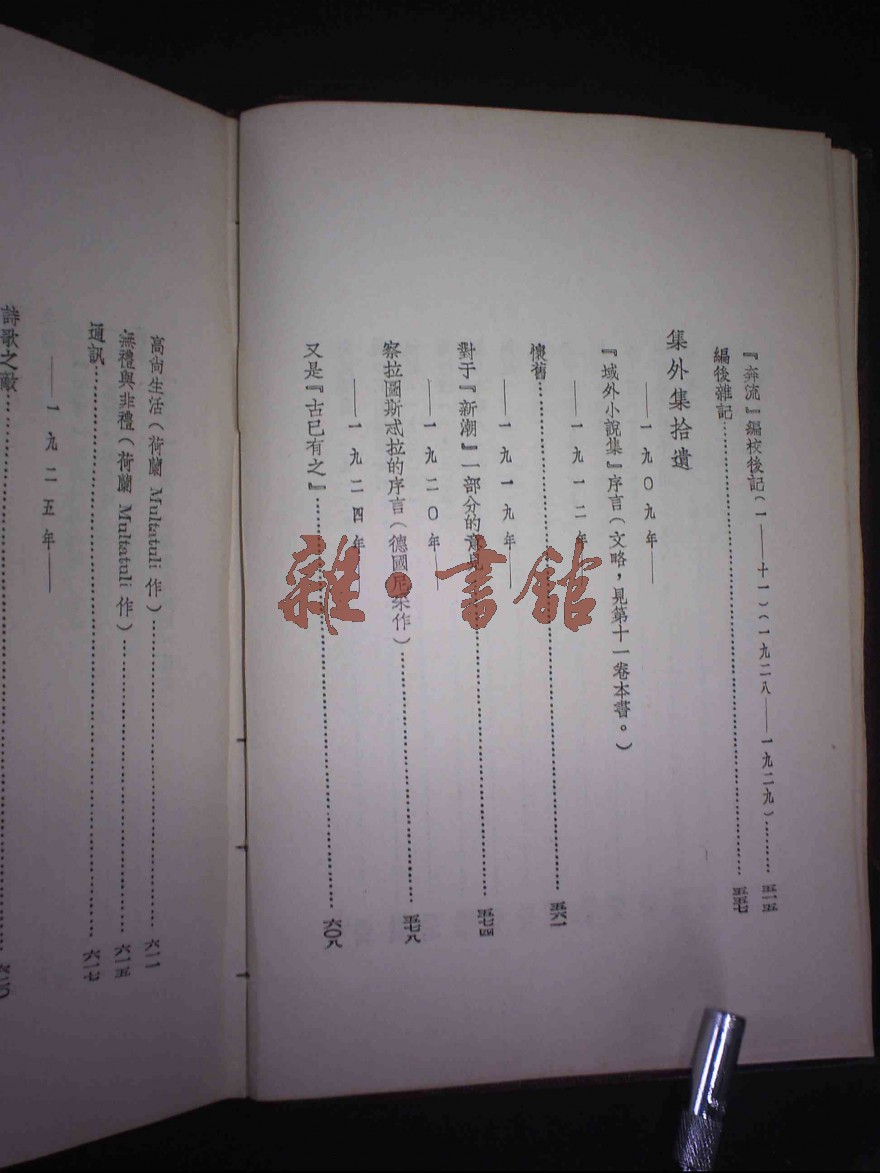 『奔流』編校後記(一——十一)(一九二八——一九二九)……五一五
編後雜記……五五七
集外集拾遺
——一九〇九年——
『域外小說集』序言(文略,見第十一卷本書。)
——一九一二年
懷舊……五六一
——一九一九年——
對于『新潮』一部分的意見……五七四
——一九二〇年——
察拉圖斯忒拉的序言(德國尼采作)……五七八
——一九二四年
又是『古已有之』……六〇八
高尚生活(荷蘭 Multatuli 作)……六一一
無禮與非禮(荷蘭 Multatuli 作)……六一五
通訊……六一七
——一九二五年——
詩歌之敵……六二〇
雜·書館